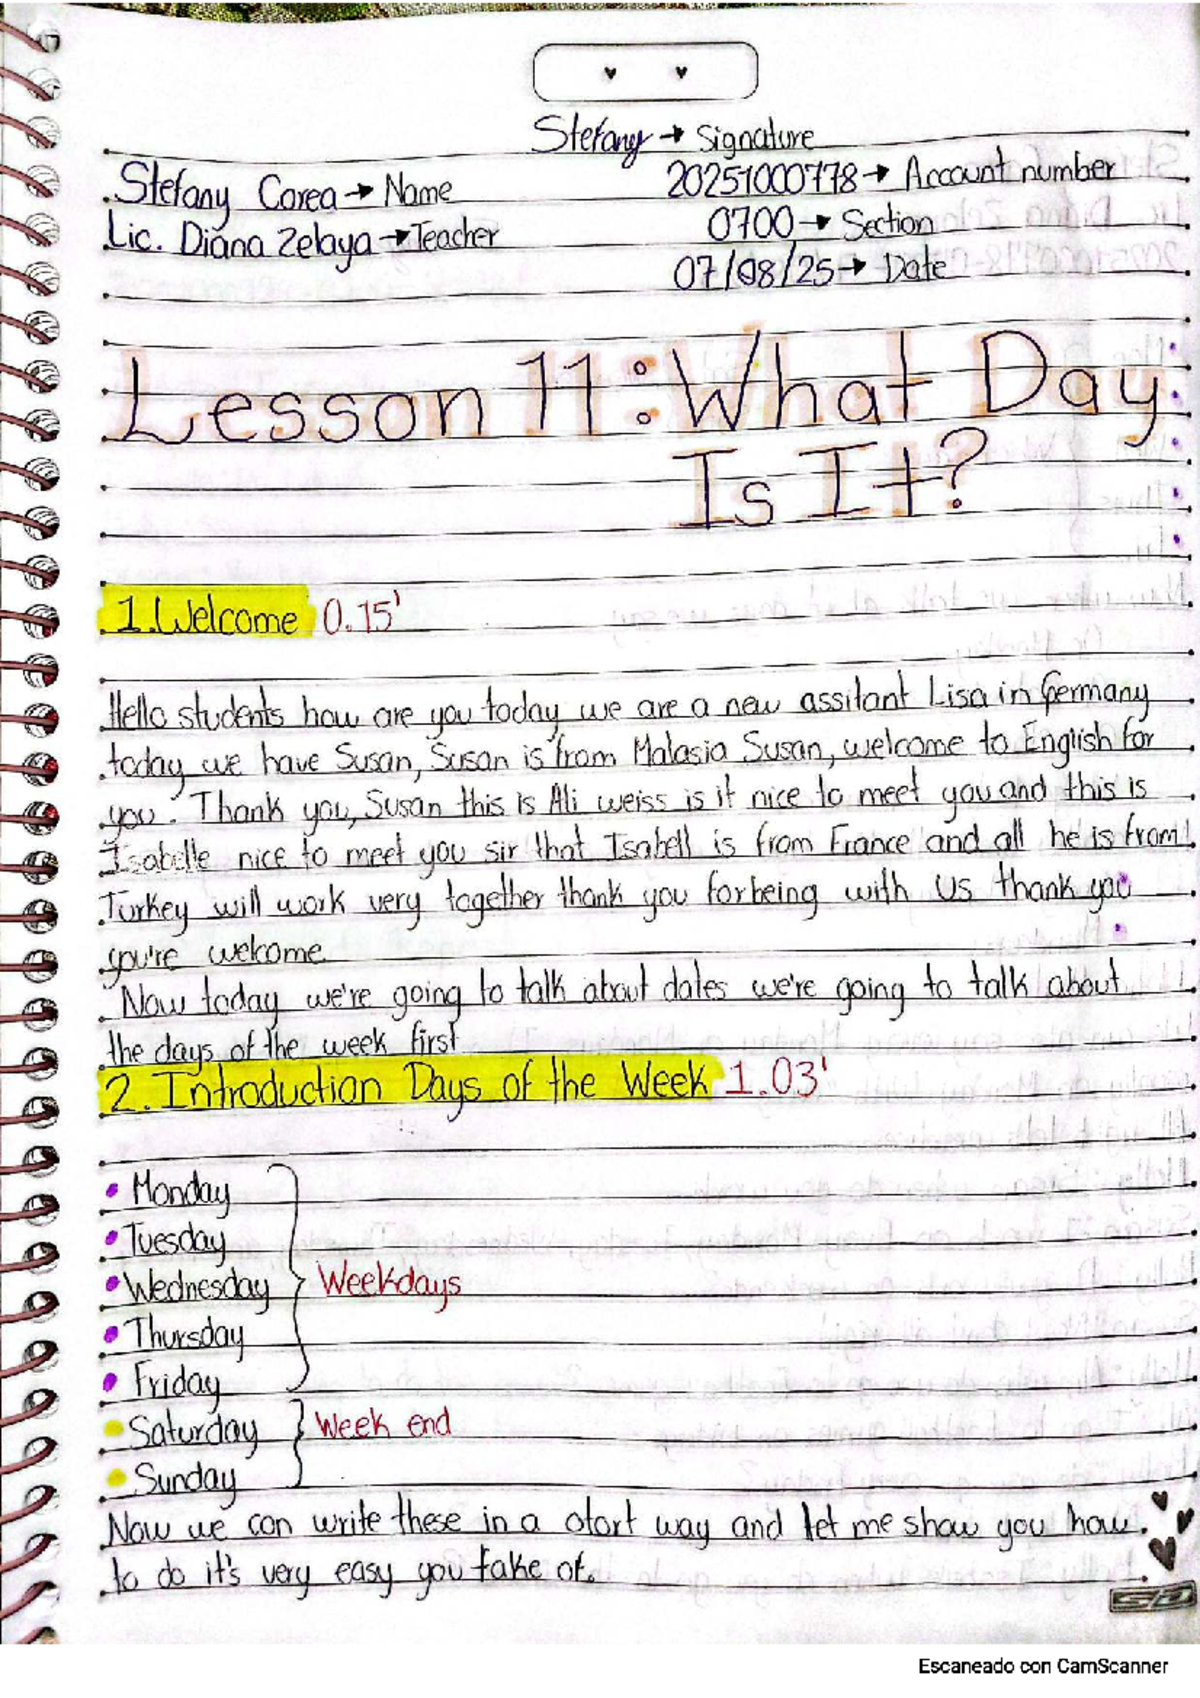 Stefany → Signature
Stefany Corea → Name
20251000778 → Account number
Lic. Diana Zelaya → Teacher
0700 → Section
07/08/25 → Date
Lesson 11: What Day
Is It?
1. Welcome 0.15'
Hello students how are you today we are a new assitant Lisa in Germany
today we have Susan, Susan is from Malasia Susan, welcome to English for
you. Thank you, Susan this is Ali weiss is it nice to meet you and this is
Isabelle nice to meet you sir that Isabell is from France and all he is from
Turkey will work very together thank you for being with us thank you
you're welcome
Now today we're going to talk about dates we're going to talk about
the days of the week first
2. Introduction Days of the Week 1.03'
• Monday
• Tuesday
• Wednesday
Weekdays
• Thursday
• Friday
• Saturday
Week end
• Sunday
Now we can write these in a otort way and let me show you how
to do it's very easy you take of.
Escaneado con CamScanner